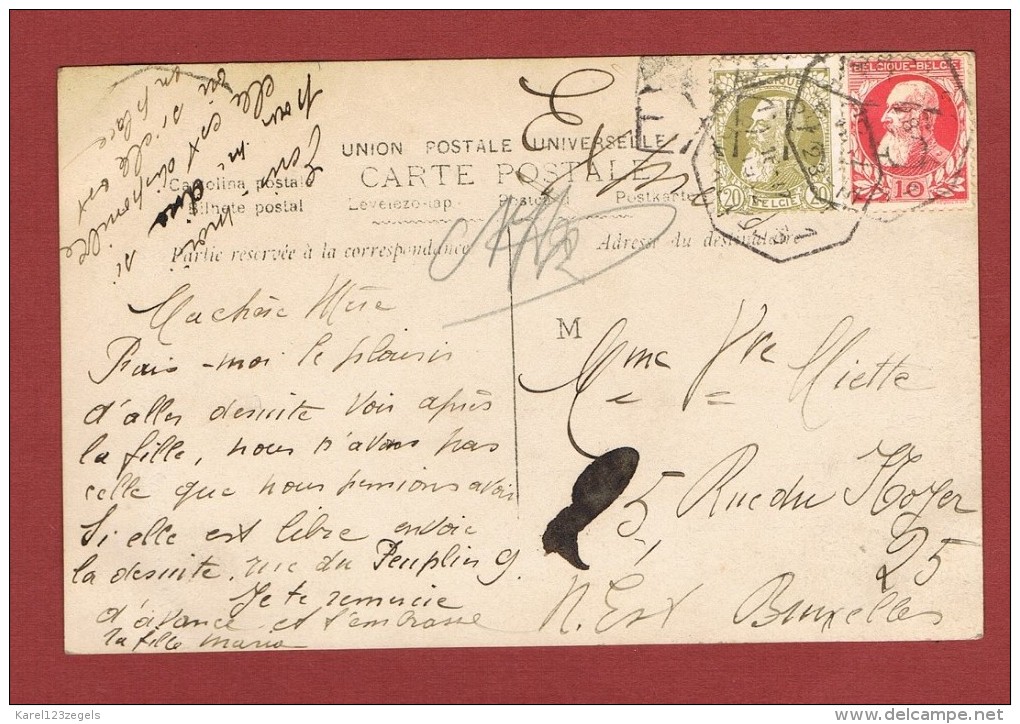 BELGIQUE-BELGIË
10
BELGIQUE
20
20
BELGIË
UNION POSTALE UNIVERSELLE
CARTE POSTALE
Cartolina postal
Levelezo-lap.
Postcard
Postkarte
Bilhete postal
Partie réservée à la correspondance
Adresse du destinataire
M
pour
elle est disponible
où si elle est
en place
si
Ma chère Mère
Fais-moi le plaisir
d'aller desuite voir après
la fille, nous n'avons pas
celle que nous pensions avoir
Si elle est libre envoie
la desuite, rue du Peuplier 9.
Je te remercie
d'avance et t'embrasse
ta fille Maria
Mme Vve Miette
5, Rue du Noyer
25
N. Est Bruxelles
Karel123zegels
delcampe.net